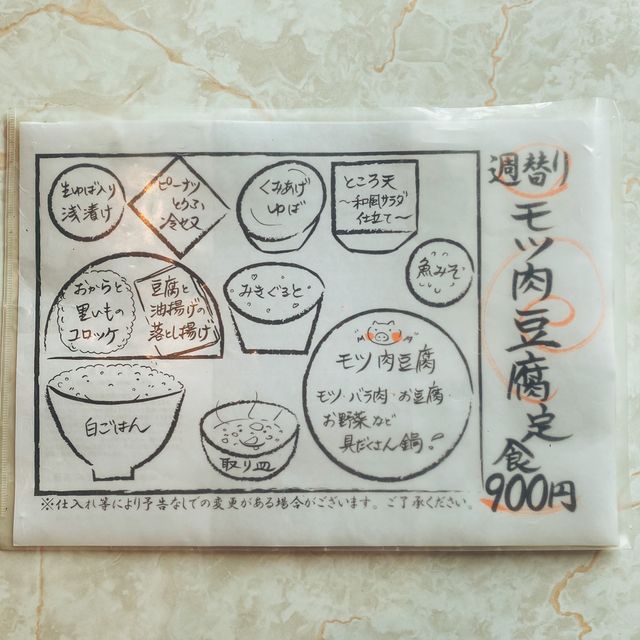 週替り
モツ肉豆腐定食
900円
生ゆば入り
浅漬け
ピーナツ
とうふ
冷奴
くみあげ
ゆば
ところ天
〜和風サラダ
仕立て〜
魚みそ
おからと
里いもの
コロッケ
豆腐と
油揚げの
落とし揚げ
みきぐると
モツ肉豆腐
モツ・バラ肉・お豆腐
お野菜など
具だくさん鍋!
白ごはん
取り皿
※仕入れ等により予告なしでの変更がある場合がございます。ご了承ください。